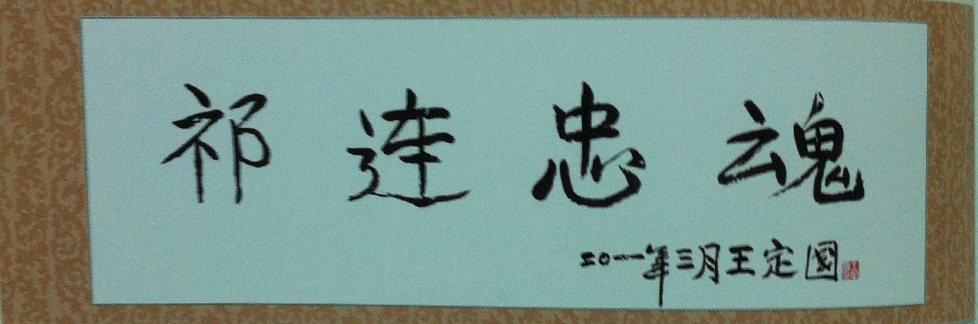 祁连忠魂
二〇一一年三月王定國